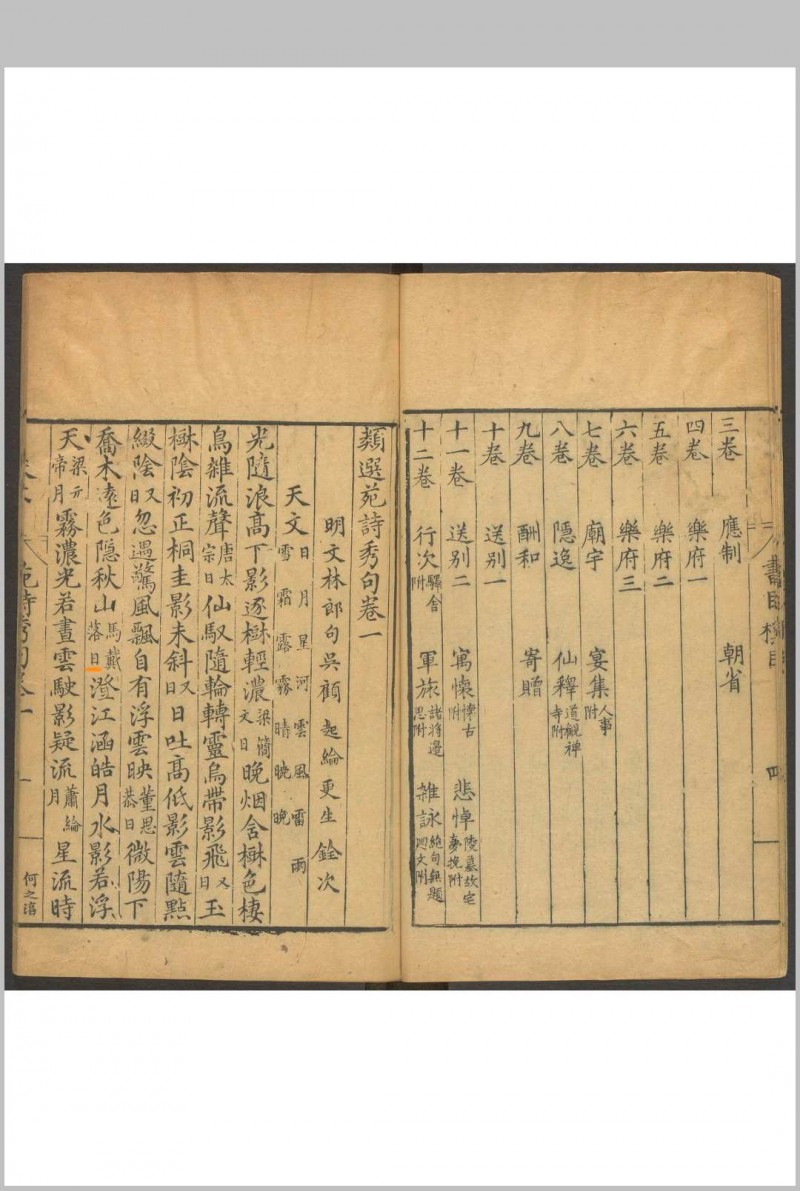 三卷 應制 朝省
四卷 樂府一
五卷 樂府二
六卷 樂府三
七卷 廟宇 宴集人事附
八卷 隱逸 仙釋道觀神寺附
九卷 酬和 寄贈
十卷 送別一
十一卷 送別二 寓懷悽古附 悲悼陵墓故宅夢挽附
十二卷 行次驛舍附 軍旅諸將邊思附 雜詠絕句無題迴文附
類選苑詩秀句卷一
明文林郎句吳顧起綸更生銓次
天文日月星河雲風雷雨雪霜露霧晴曉晚
光隨浪高下影逐樹輕濃梁簡文日晚烟含樹色棲
鳥雜流聲唐太宗日仙馭隨輪轉靈烏帶影飛又日玉
樹陰初正桐圭影未斜又日日吐高低影雲隨點
綴陰又日忽遇驚風飄自有浮雲映董思恭日微陽下
喬木遠色隱秋山馬戴落日澄江涵皓月水影若浮
天梁元帝月霧濃光若晝雲駛影疑流蕭綸月星流時
苑詩秀句卷一
一
何之源